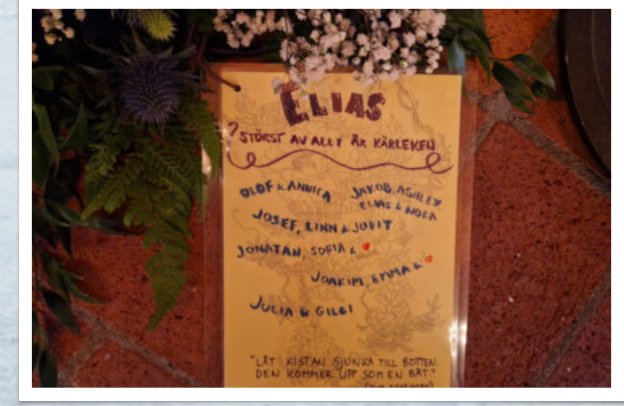 ELIAS
STÖRST AV ALLT ÄR KÄRLEKEN
OLOF & ANNICA
JAKOB, ASHLEY
ELIAS & NORA
JOSEF, LINN & JUDIT
JONATAN, SOFIA &
JOAKIM, EMMA &
JULIA & GILBI
"LÅT KISTAN SJUNKA TILL BOTTEN.
DEN KOMMER UPP SOM EN BÅT."